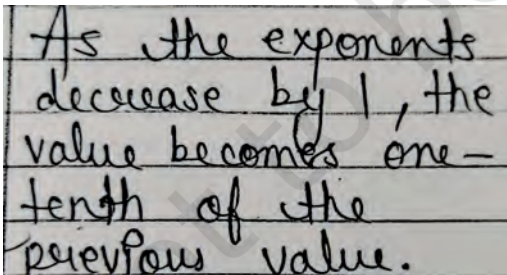 As the exponents
decrease by 1, the
value becomes one-
tenth of the
previous value.